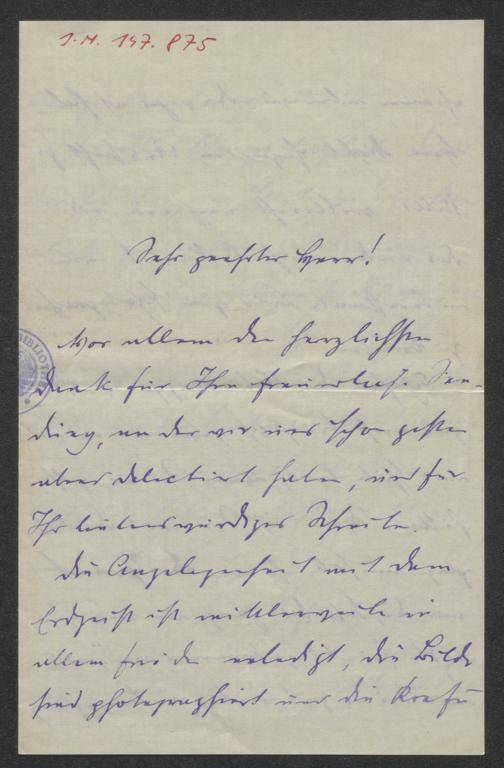 J.N. 147.875
Sehr geehrter Herr!
BIBLIOTHEK
Vor allem den herzlichsten
Dank für Ihre freundlich. Sen-
dung, an der wir uns schon gestern
abend delectiert haben, und für
Ihr liebenswürdiges Schreiben.
Die Angelegenheit mit dem
Erdgeist ist mittlerweile in
allem Frieden erledigt, die Bilder
sind photographiert und die